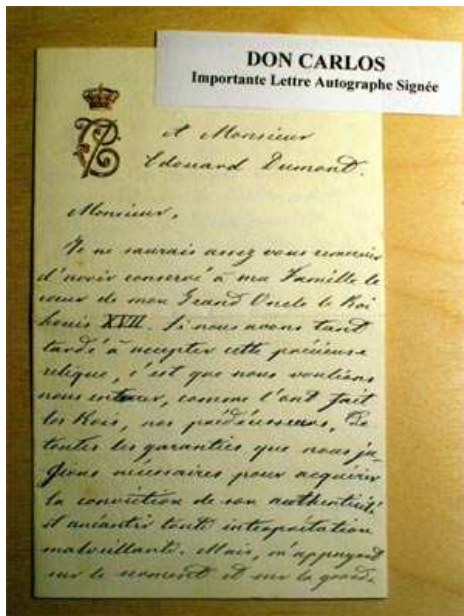 DON CARLOS
Importante Lettre Autographe Signée
A Monsieur
Edouard Dumont.
Monsieur,
Je ne saurais assez vous remercier
d'avoir conservé à ma Famille le
cœur de mon Grand Oncle le Roi
Louis XVII. Si nous avons tant
tardé à accepter cette précieuse
relique, c'est que nous voulions
nous entourer, comme l'ont fait
les Rois, nos prédécesseurs, de
toutes les garanties que nous ju-
gions nécessaires pour acquérir
la conviction de son authenticité
et anéantir toute interprétation
malveillante. Mais, m'appuyant
sur le serment et sur la grande